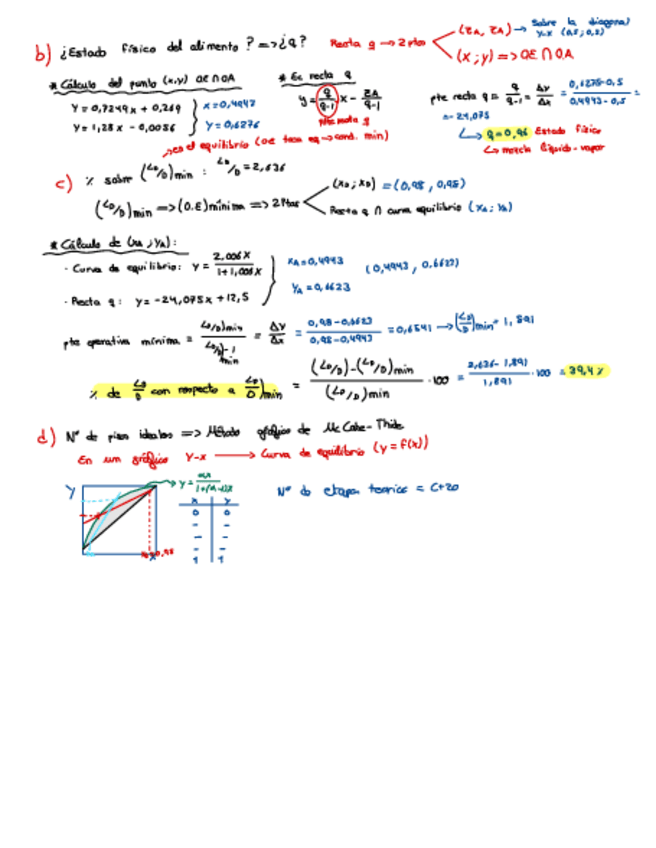 b) ¿Estado físico del alimento? => ¿q?
Recta q → 2 ptos
(zA, zA) → sobre la diagonal
y-x (0,5; 0,5)
(x; y) => OE ∩ OA
* Cálculo del punto (x,y) OE ∩ OA
y = 0,7249x + 0,269
y = 1,28x - 0,0056
x = 0,4943
y = 0,6276
* Ec recta q
y = q/q-1 x - zA/q-1
pte recta q
pte recta q = q/q-1 = Δy/Δx = 0,6275-0,5/0,4943-0,5 =
= -24,075
↳ q = 0,96 Estado físico
↳ mezcla líquido-vapor
→ es el equilibrio (OE → cond. min)
c) % sobre (Lo/D)min : Lo/D = 2,636
(Lo/D)min => (O.E) mínima => 2 Ptos
(xD; xD) = (0,98, 0,98)
Recta q ∩ curva equilibrio (xA; yA)
* Cálculo de (xA; yA):
· Curva de equilibrio: y = 2,006x/1+1,006x
· Recta q: y = -24,075x + 12,5
xA = 0,4943
yA = 0,6623
(0,4943, 0,6623)
pte operativa mínima = Lo/D)min/Lo/D)-1 min = Δy/Δx = 0,98-0,6623/0,98-0,4943 = 0,6541 → (Lo/D)min = 1,891
% de Lo/D con respecto a Lo/D)min = (Lo/D)-(Lo/D)min/(Lo/D)min · 100 = 2,636-1,891/1,891 · 100 = 39,4%
d) Nº de pisos ideales => Método gráfico de McCabe-Thiele
En un gráfico y-x → Curva de equilibrio (y = f(x))
y
→ y = αx/1+(α-1)x
x y
0 0
- -
- -
- -
1 1
Nº de etapas teóricas = C+20